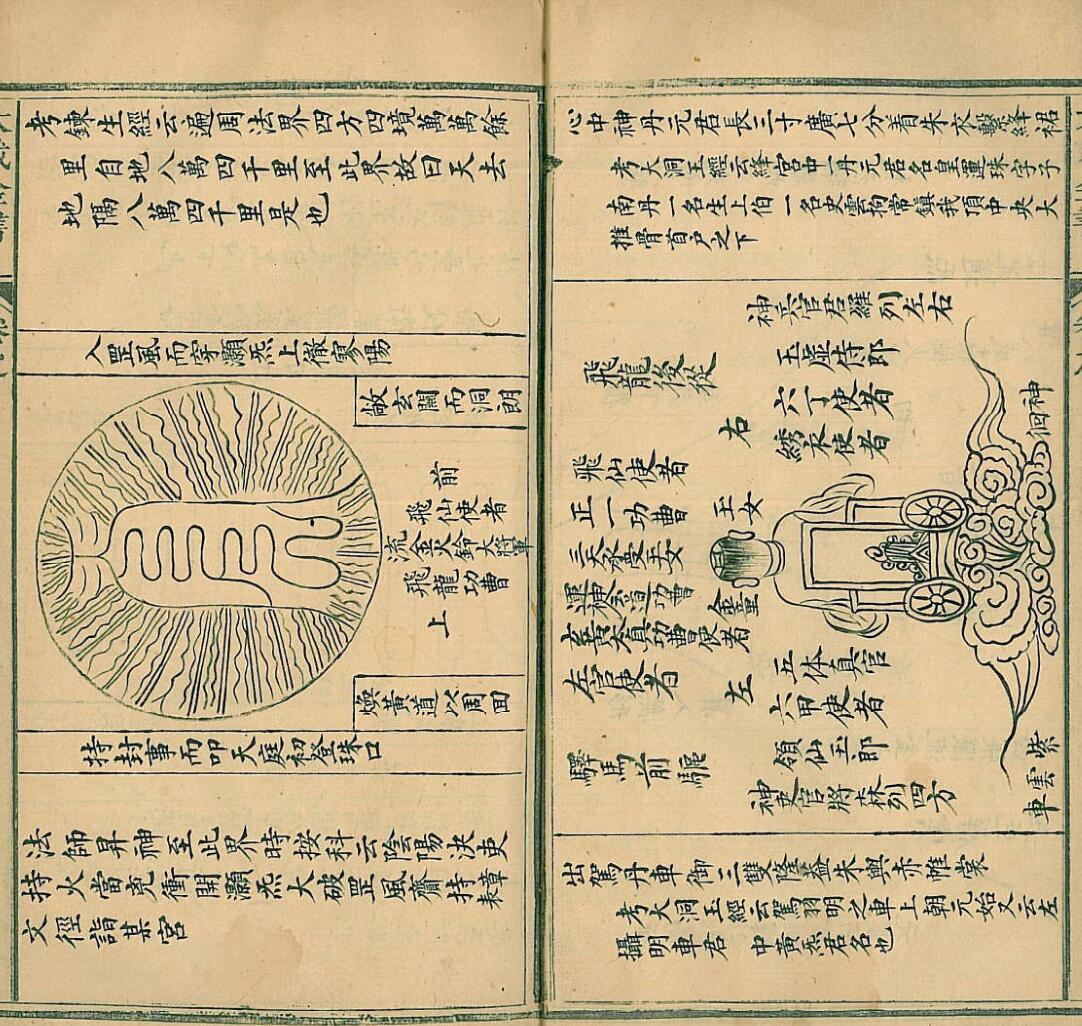 心中神丹元君長三寸廣七分着朱衣繫絳裙
考大洞玉經云絳宮中一丹元君名皇運珠字子
南丹一名生上伯一名史雲拘常鎮我頂中央大
推骨首戶之下
神兵官君羅列左右
玉虛侍郎
六丁使者
綉衣使者
右
飛龍後從
飛仙使者
正一功曹
玉女
金童
左官使者
左
五体真官
六甲使者
領仙玉郎
驛馬前驅
神吏官將森列四方
神
紫雲車
出駕丹車御三雙隆益朱輿赤帷裳
考大洞玉經云駕羽明之車上朝元始又云左
攝明車君 中黃炁君名也
考鍊生經云遍周法界四方四境萬萬餘
里自地八萬四千里至此界故曰天去
地隔八萬四千里是也
入罡風而穿灝炁上徹寥陽
敞玄關而洞朗
前
飛仙使者
流金火鈴大將軍
飛龍功曹
上
煥黃道以周回
持封事而叩天庭初登珠口
法師昇神至此界時按科云陰陽決吏
持火當先衝開灝炁大破罡風齎持章表
文徑詣某宮